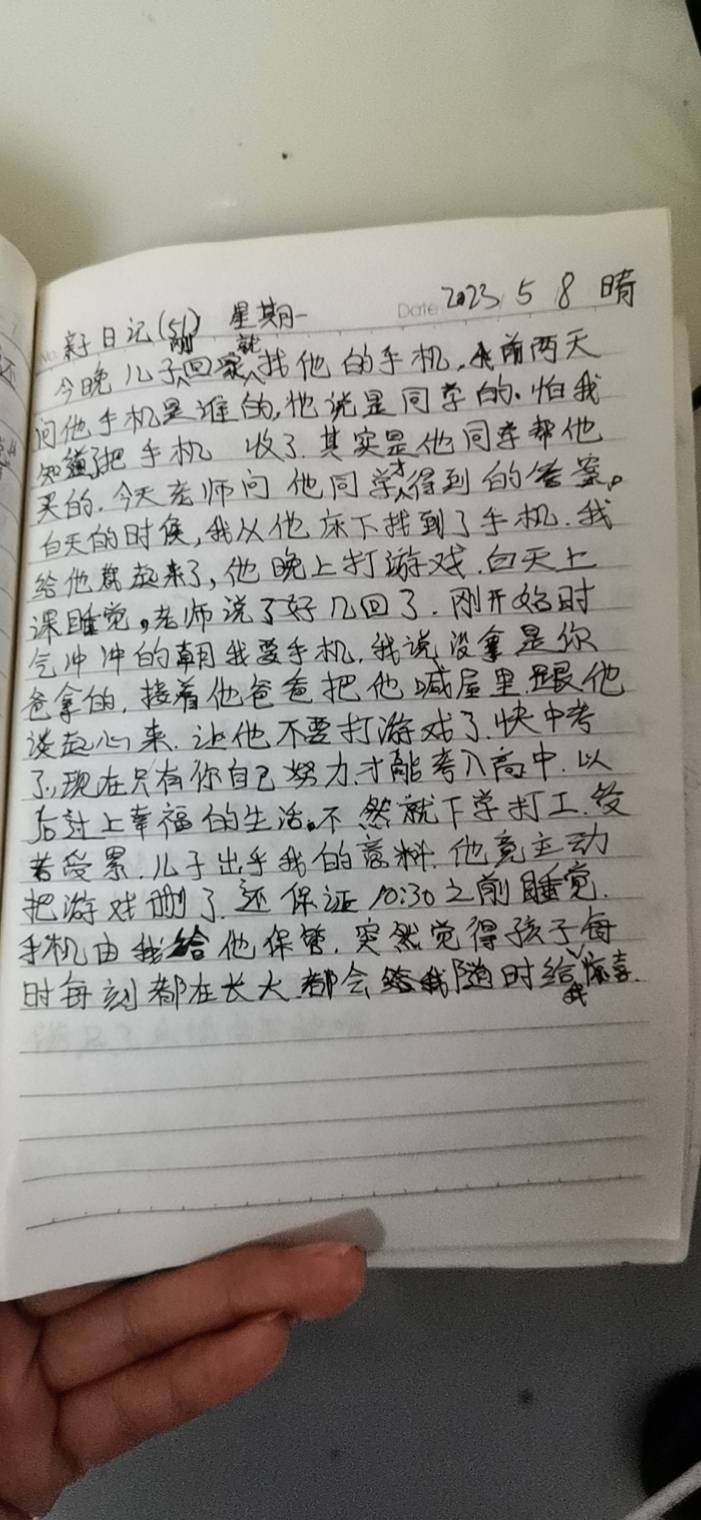 亲子日记(51) 星期一 Date 2023 5 8 晴
今晚儿子刚回家就找他的手机,我前两天
问他手机是谁的,他说是同学的.怕我
知道了把手机 收了.其实是他同学帮他
买的.今天老师问他同学才得到的答案。
白天的时候,我从他床下找到了手机.我
给他 起来了,他晚上打游戏.白天上
课睡觉,老师说了好几回了.刚开始时
气冲冲的朝我要手机,我说没拿是你
爸拿的,接着他爸爸把他喊屋里.跟他
谈起心来.让他不要打游戏了.快中考
了,现在只有你自己努力,才能考入高中.以
后过上幸福的生活。不然就下学打工.受
苦受累.儿子出乎我的意料.他竟主动
把游戏删了.还保证10:30之前睡觉.
手机由我给他保管.突然觉得孩子每
时每刻都在长大.都会随时给我惊喜.